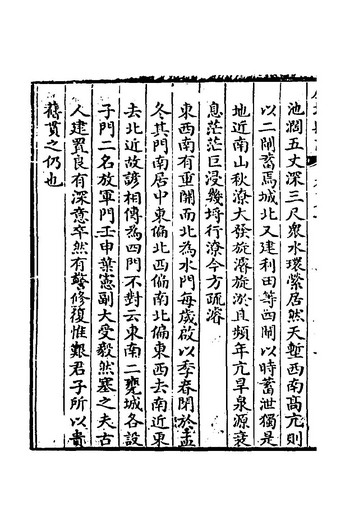 池濶五丈深三尺衆水環縈居然天塹西南髙亢則
以二閘蓄焉城北又建利田等四閘以時蓄泄獨是
地近南山秋潦大發旋濬旋淤且頻年亢旱泉源衰
息茫茫巨浸幾埒行潦今方疏濬
東西南有重關而北為水門每歲啟以季春閉於孟
冬其門南居中東偏北西偏南北偏東西去南近東
去北近故諺相傳為四門不對云東南二甕城各設
子門二名放軍門壬申葉憲副大受毅然塞之夫古
人建置良有深意卒然有警修復惟艱君子所以貴
舊貫之仍也